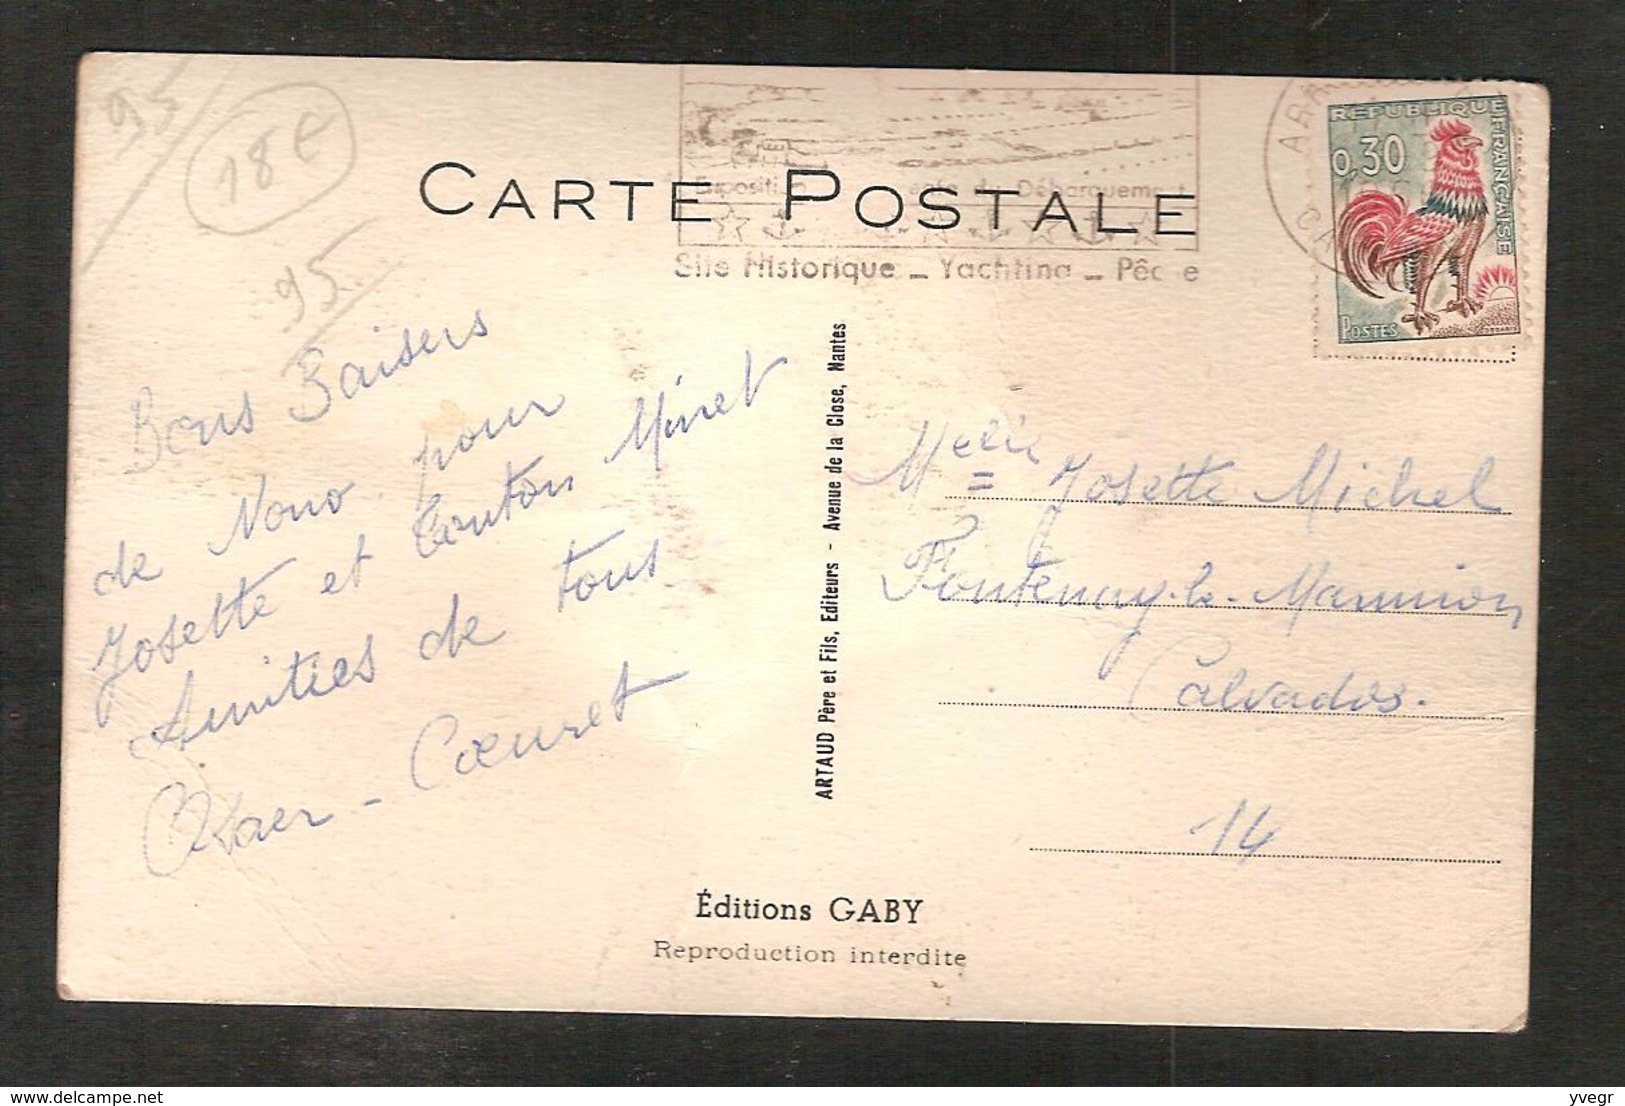 95
18 €
95
CARTE POSTALE
Exposition Débarquement
Site Historique - Yachting - Pêche
REPUBLIQUE FRANÇAISE
0,30
POSTES
Bons Baisers
de Nono pour
Josette et tonton Minet
Amitiés de tous
Coeuret
ARTAUD Père et Fils, Editeurs - Avenue de la Close, Nantes
Melle Josette Michel
Fontenay-le-Marmion
Calvados.
14
Éditions GABY
Reproduction interdite
yvegr